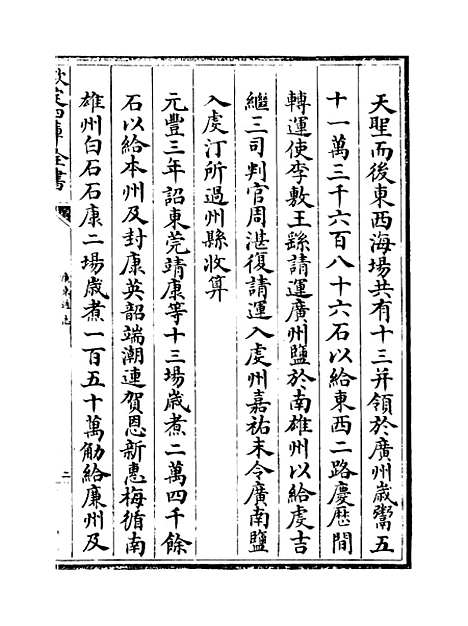 天聖而後東西海場共有十三并領於廣州歲鬻五
十一萬三千六百八十六石以給東西二路慶厯間
轉運使李敷王繇請運廣州鹽於南雄州以給䖍吉
繼三司判官周湛復請運入䖍州嘉祐末令廣南鹽
入䖍汀所過州縣收算
元豐三年詔東莞靖康等十三場歲煮二萬四千餘
石以給本州及封康英韶端潮連賀恩新惠梅循南
雄州白石石康二場歲煮一百五十萬觔給廉州及
欽定四庫全書
廣東通志
二